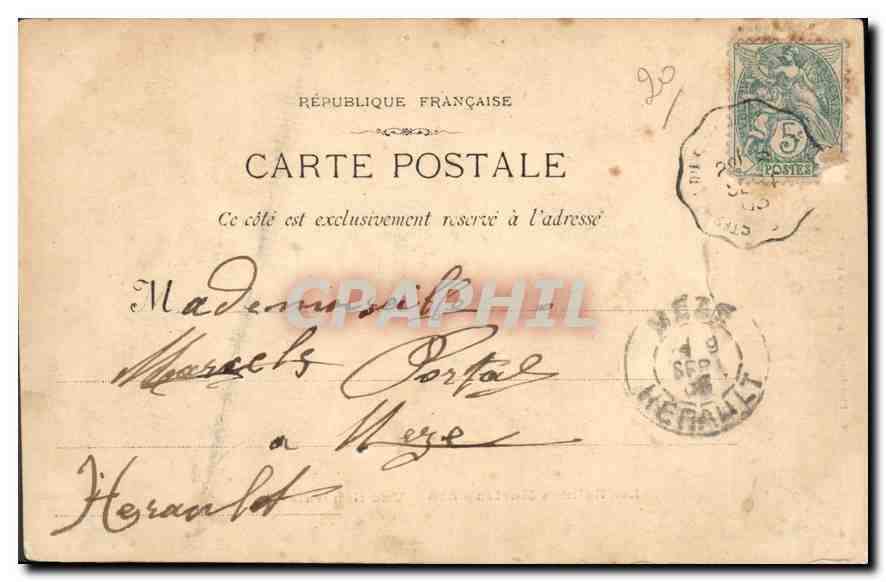 20,
RÉPUBLIQUE FRANÇAISE
CARTE POSTALE
Ce côté est exclusivement reservé à l'adresse
5c
POSTES
Mademoiselle
CPAPHIL
Portal
a Meze
Herault
MEZE
SEPT
HERAULT